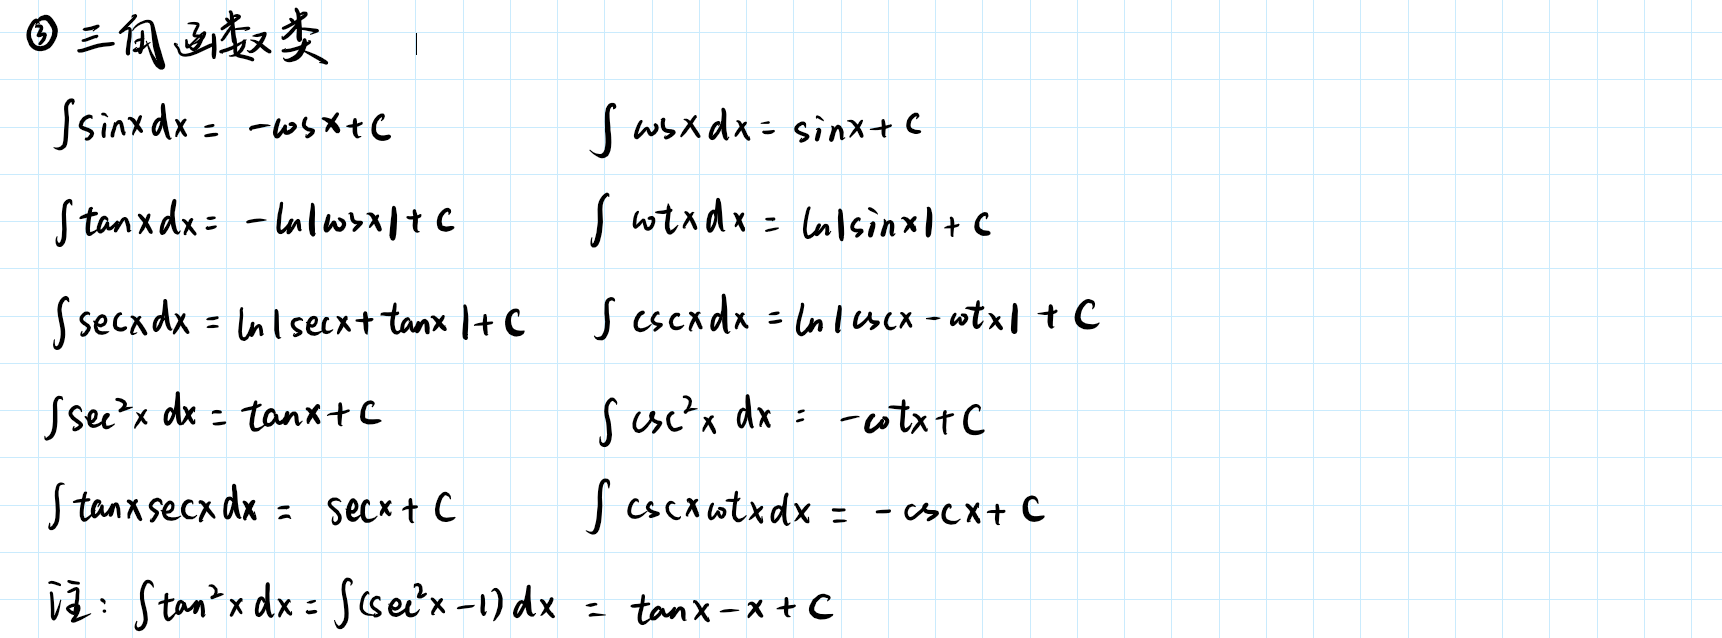 ③ 三角函数类
∫sinx dx = -cosx+C ∫cosx dx = sinx+C
∫tanx dx = -ln|cosx|+C ∫cotx dx = ln|sinx|+C
∫secx dx = ln|secx+tanx|+C ∫cscx dx = ln|cscx-cotx|+C
∫sec²x dx = tanx+C ∫csc²x dx = -cotx+C
∫tanxsecx dx = secx+C ∫cscxcotx dx = -cscx+C
注: ∫tan²x dx = ∫(sec²x-1)dx = tanx-x+C